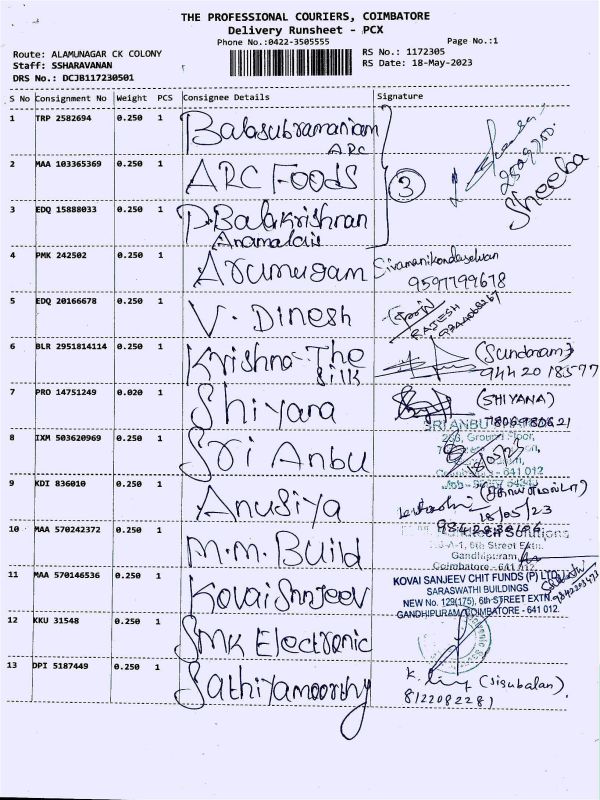 THE PROFESSIONAL COURIERS, COIMBATORE
Delivery Runsheet - PCX
Phone No.:0422-3505555 Page No.:1
Route: ALAMUNAGAR CK COLONY RS No.: 1172305
Staff: SSHARAVANAN RS Date: 18-May-2023
DRS No.: DCJB117230501
S No Consignment No Weight PCS Consignee Details Signature
1 TRP 2582694 0.250 1 Balasubramaniam
ARC
Sheeba
2 MAA 103365369 0.250 1 ARC Foods 3
3 EDQ 15888033 0.250 1 P. Balakrishnan
Anamalais
4 PMK 242502 0.250 1 Arumugam Sivamanikandaselvan
9597799678
5 EDQ 20166678 0.250 1 V. Dinesh
RAJESH
6 BLR 2951814114 0.250 1 Krishna The
Silk
(Sundaram)
94420 18577
7 PRO 14751249 0.020 1 Shiyana (SHIYANA)
SRI ANBU
Ground Floor,
8 IXM 503620969 0.250 1 Sri Anbu 18/05/23
641 012
9 KDI 836010 0.250 1 Anusiya
18/05/23
10 MAA 570242372 0.250 1 M.M. Build
Solutions
6th Street Extn.
Gandhipuram,
Coimbatore - 641 012.
11 MAA 570146536 1 Kovai Sanjeev
KOVAI SANJEEV CHIT FUNDS (P) LTD
SARASWATHI BUILDINGS
NEW No. 129(175), 6th STREET EXTN.
GANDHIPURAM, COIMBATORE - 641 012.
12 KKU 31548 0.250 1 SMK Electronic
13 DPI 5187449 0.250 1 Sathiyamoorthy
(Sisubalan)